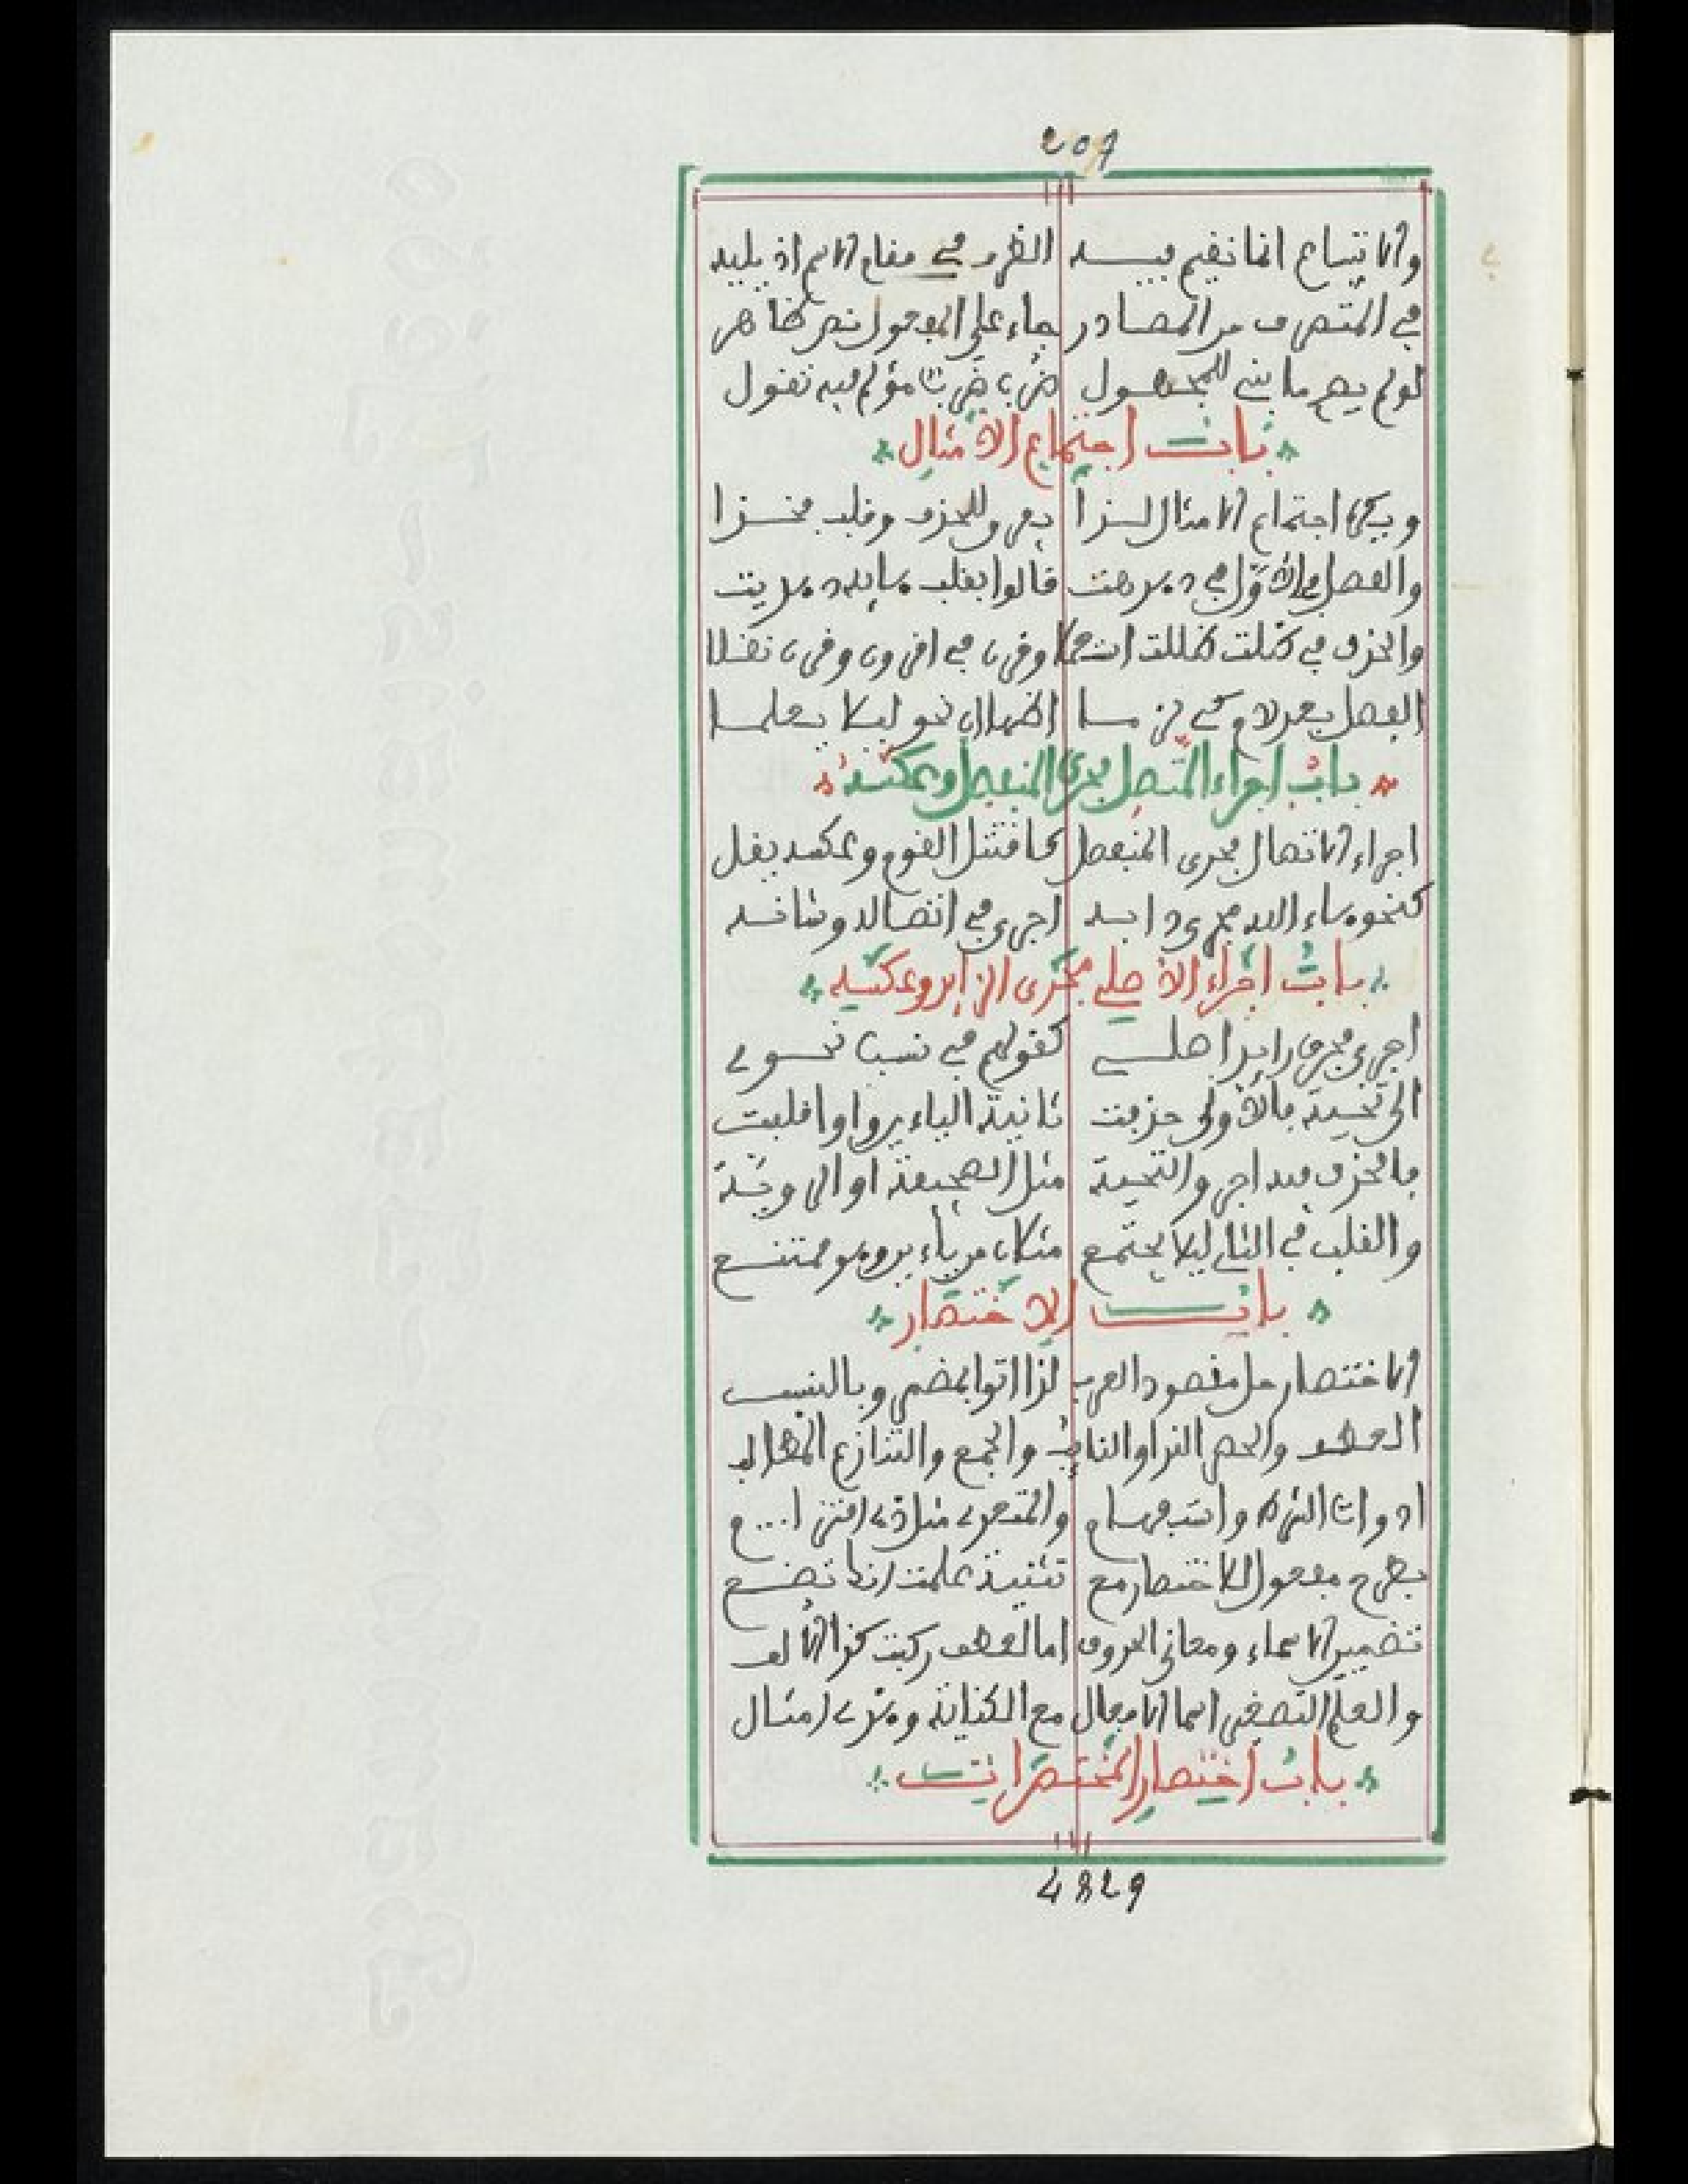 207
والاتساع انما نقيم فيه الظروف في مقام الاسم اذ يليه
في المتصرف من المصادر جاء على المفعول نصر ظاهر
لو لم يصر ما بني للمجهول ضرب ضرب مؤلم فيه تقول
باب اجتماع الامثال
ويكره اجتماع الامثال لذا يفر وللحذف وقلب
والفصل في الاول في دهدهت قالوا بقلب هائه دهديت
والحذف في ظلت ظللت وقرن في اقرون وقرن نقلا
الفصل اضربنان نحو ليلا يعلما
باب اجراء المتصل مجرى المنفصل وعكسه
اجراء الاتصال مجرى المنفصل كاقتتل القوم وعكسه يقل
كنحو هاء الله مجرى دابه اجري في اتصاله وشانه
باب اجراء الاصلي مجرى الزايد وعكسه
اجري مجرى زايد اصلي كقولهم في نسب نحوي
الى تحية بالاولى حذفت ثانية الياء وواوا قلبت
بالحذف فيه اجر والتحية مثل الصحيفة او الى
والقلب في الثاني ليلا يجتمع مثلان من ياء وهو ممتنع
باب الاختصار
الاختصار جل مقصود العرب لذا اتوا بمضمر وبالنسب
العطف والحصر الندا والنائب والجمع والتنازع
ادوات الشرط واستفهام والمتعدي مثل ذي
بطرح مفعول الاختصار مع تثنية علمت انها تضع
تضمين الاسماء ومعاني الحروف اما لعطف ركبت كذا الالف
والعلم التصغير اسما الافعال مع الكناية وهذي امثال
باب اختصار المختصرات
4829